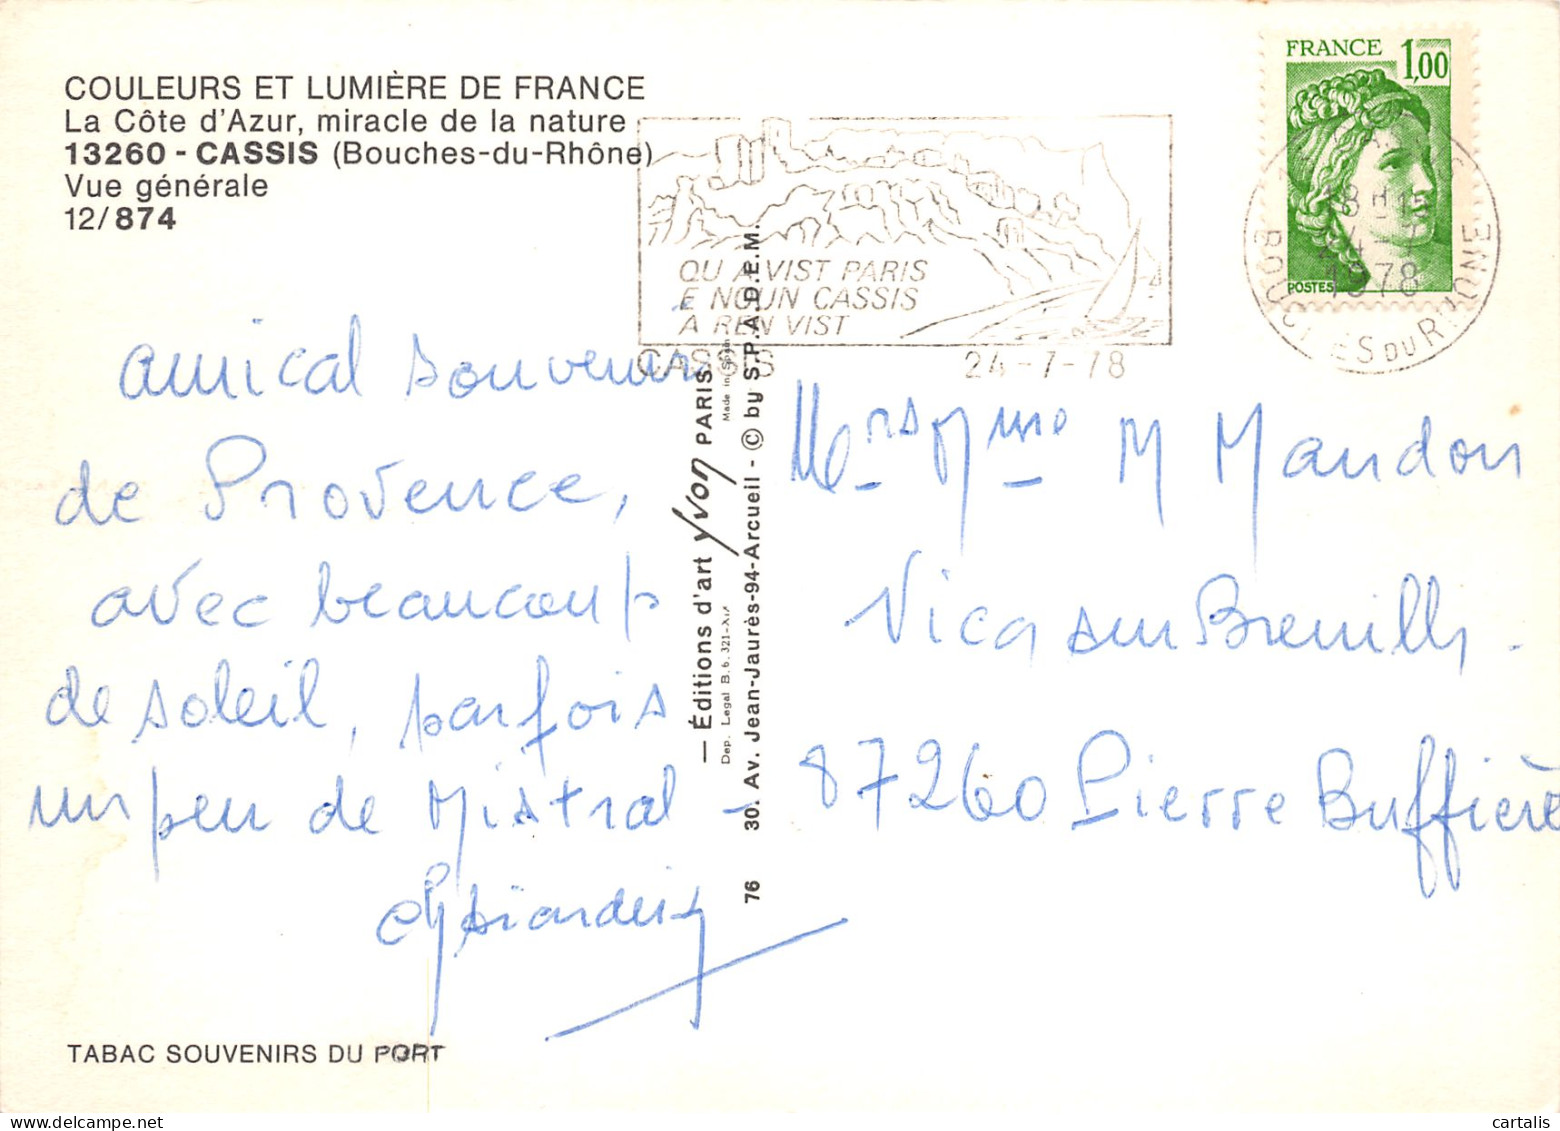 COULEURS ET LUMIÈRE DE FRANCE
La Côte d'Azur, miracle de la nature
13260 - CASSIS (Bouches-du-Rhône)
Vue générale
12/874
QU A VIST PARIS
E NOUN CASSIS
A REN VIST
CASSIS 24-7-78
FRANCE 1,00
POSTES
18 H 15
24-7
1978
BOUCHES DU RHONE
amical souvenir
de Provence,
avec beaucoup
de soleil, parfois
un peu de Mistral -
— Éditions d'art yvon PARIS
Dep. Legal B. 6. 321-XIX Made in Spain
76 30. Av. Jean-Jaurès-94-Arcueil - © by S.P.A.D.E.M.
Mme M Mandon
Vicq sur Breuilh.
87260 Pierre Buffière
TABAC SOUVENIRS DU PORT
cartalis